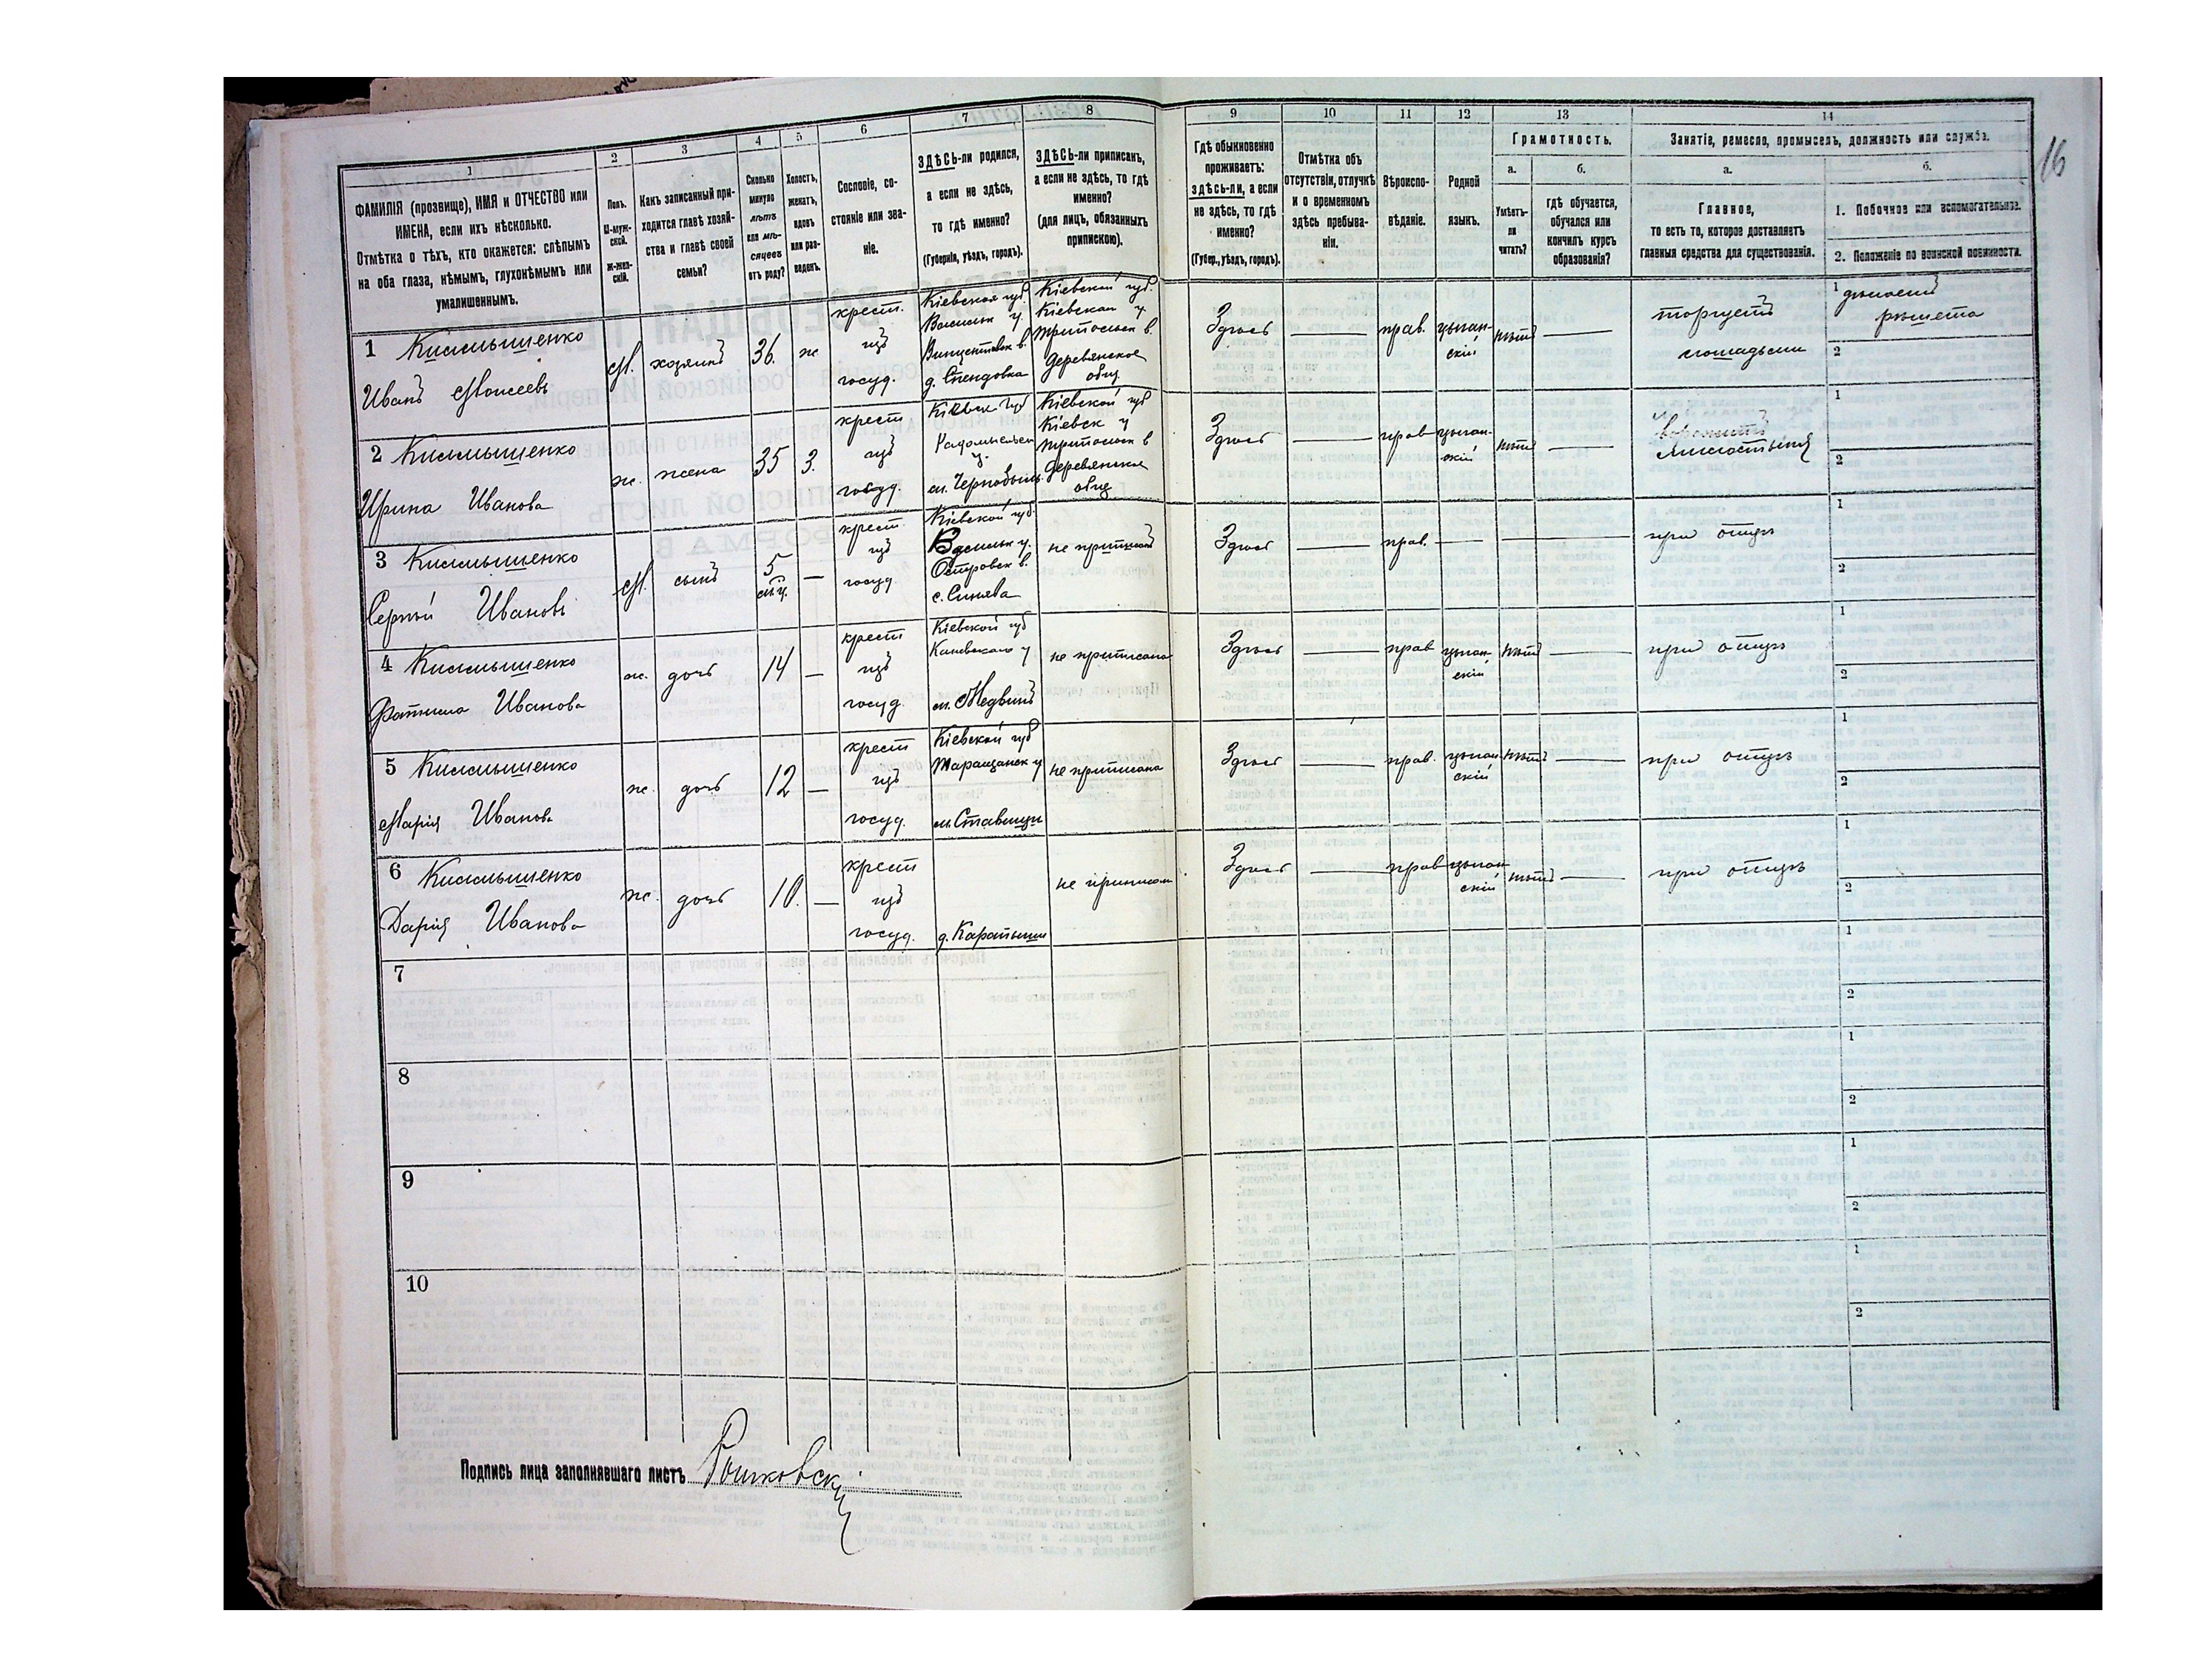 16
1 2 3 4 5 6 7 8 9 10 11 12 13 14
ФАМИЛІЯ (прозвище), ИМЯ и ОТЧЕСТВО или
ИМЕНА, если ихъ нѣсколько.
Отмѣтка о тѣхъ, кто окажется: слѣпымъ
на оба глаза, нѣмымъ, глухонѣмымъ или
умалишеннымъ.
Полъ.
М-муж-
ской.
Ж-жен-
скій.
Какъ записанный при-
ходится главѣ хозяй-
ства и главѣ своей
семьи?
Сколько
минуло
лѣтъ
или мѣ-
сяцевъ
отъ роду?
Холостъ,
женатъ,
вдовъ
или раз-
веденъ.
Сословіе, со-
стояніе или зва-
ніе.
ЗДѢСЬ-ли родился,
а если не здѣсь,
то гдѣ именно?
(Губернія, уѣздъ, городъ).
ЗДѢСЬ-ли приписанъ,
а если не здѣсь, то гдѣ
именно?
(для лицъ, обязанныхъ
припискою).
Гдѣ обыкновенно
проживаетъ:
здѣсь-ли, а если
не здѣсь, то гдѣ
именно?
(Губер., уѣздъ, городъ).
Отмѣтка объ
отсутствіи, отлучкѣ
и о временномъ
здѣсь пребыва-
ніи.
Вѣроиспо-
вѣданіе.
Родной
языкъ.
Грамотность.
а.
Умѣетъ-
ли
читать?
б.
гдѣ обучается,
обучался или
кончилъ курсъ
образованія?
Занятіе, ремесло, промыселъ, должность или служба.
а.
Главное,
то есть то, которое доставляетъ
главныя средства для существованія.
б.
1. Побочное или вспомогательное.
2. Положеніе по воинской повинности.
1
Иванъ Моисеевъ
М. хозяинъ 36. ж
крест.
изъ
госуд.
Кіевская губ.
Васильк у.
Кіевской губ.
Кіевскаи у.
Трипольск в.
Деревянское
общ.
Здѣсь — прав. цыган-
скій
нѣтъ —
торгуетъ
лошадьми
1 дѣлаетъ
рѣшета
2
2
Ирина Иванова
ж. жена 35 З.
крест
изъ
госуд.
Кіевск губ
Радомысльск
у.
м. Чернобыль
Кіевской губ
Кіевск у
Трипольск в
Деревянское
общ
Здѣсь — прав цыган-
скій
нѣтъ —
милостыня
1
2
3
Сергѣй Ивановъ
М. сынъ 5
м-ц. —
крест
изъ
госуд.
Кіевской губ
Васильк у.
Островск в.
с. Синява
не приписанъ
Здѣсь — прав. — — —
при отцѣ
1
2
4
Иванова
ж. дочь 14 —
крест
изъ
госуд.
Кіевской губ
Каневскаго у
м. Медвинъ
не приписана
Здѣсь — прав цыган-
скій
нѣтъ —
при отцѣ
1
2
5
Марія Иванова
ж. дочь 12 —
крест
изъ
госуд.
Кіевской губ
Таращанск у
м. Ставищи
не приписана
Здѣсь — прав. цыган
скій
нѣтъ —
при отцѣ
1
2
6
Дарія Иванова
ж. дочь 10. —
крест
изъ
госуд.
д. Каратыши
не приписан
Здѣсь — прав цыган
скій
нѣтъ —
при отцѣ
1
2
7
1
2
8
1
2
9
1
2
10
1
2
Подпись лица заполнявшаго листъ